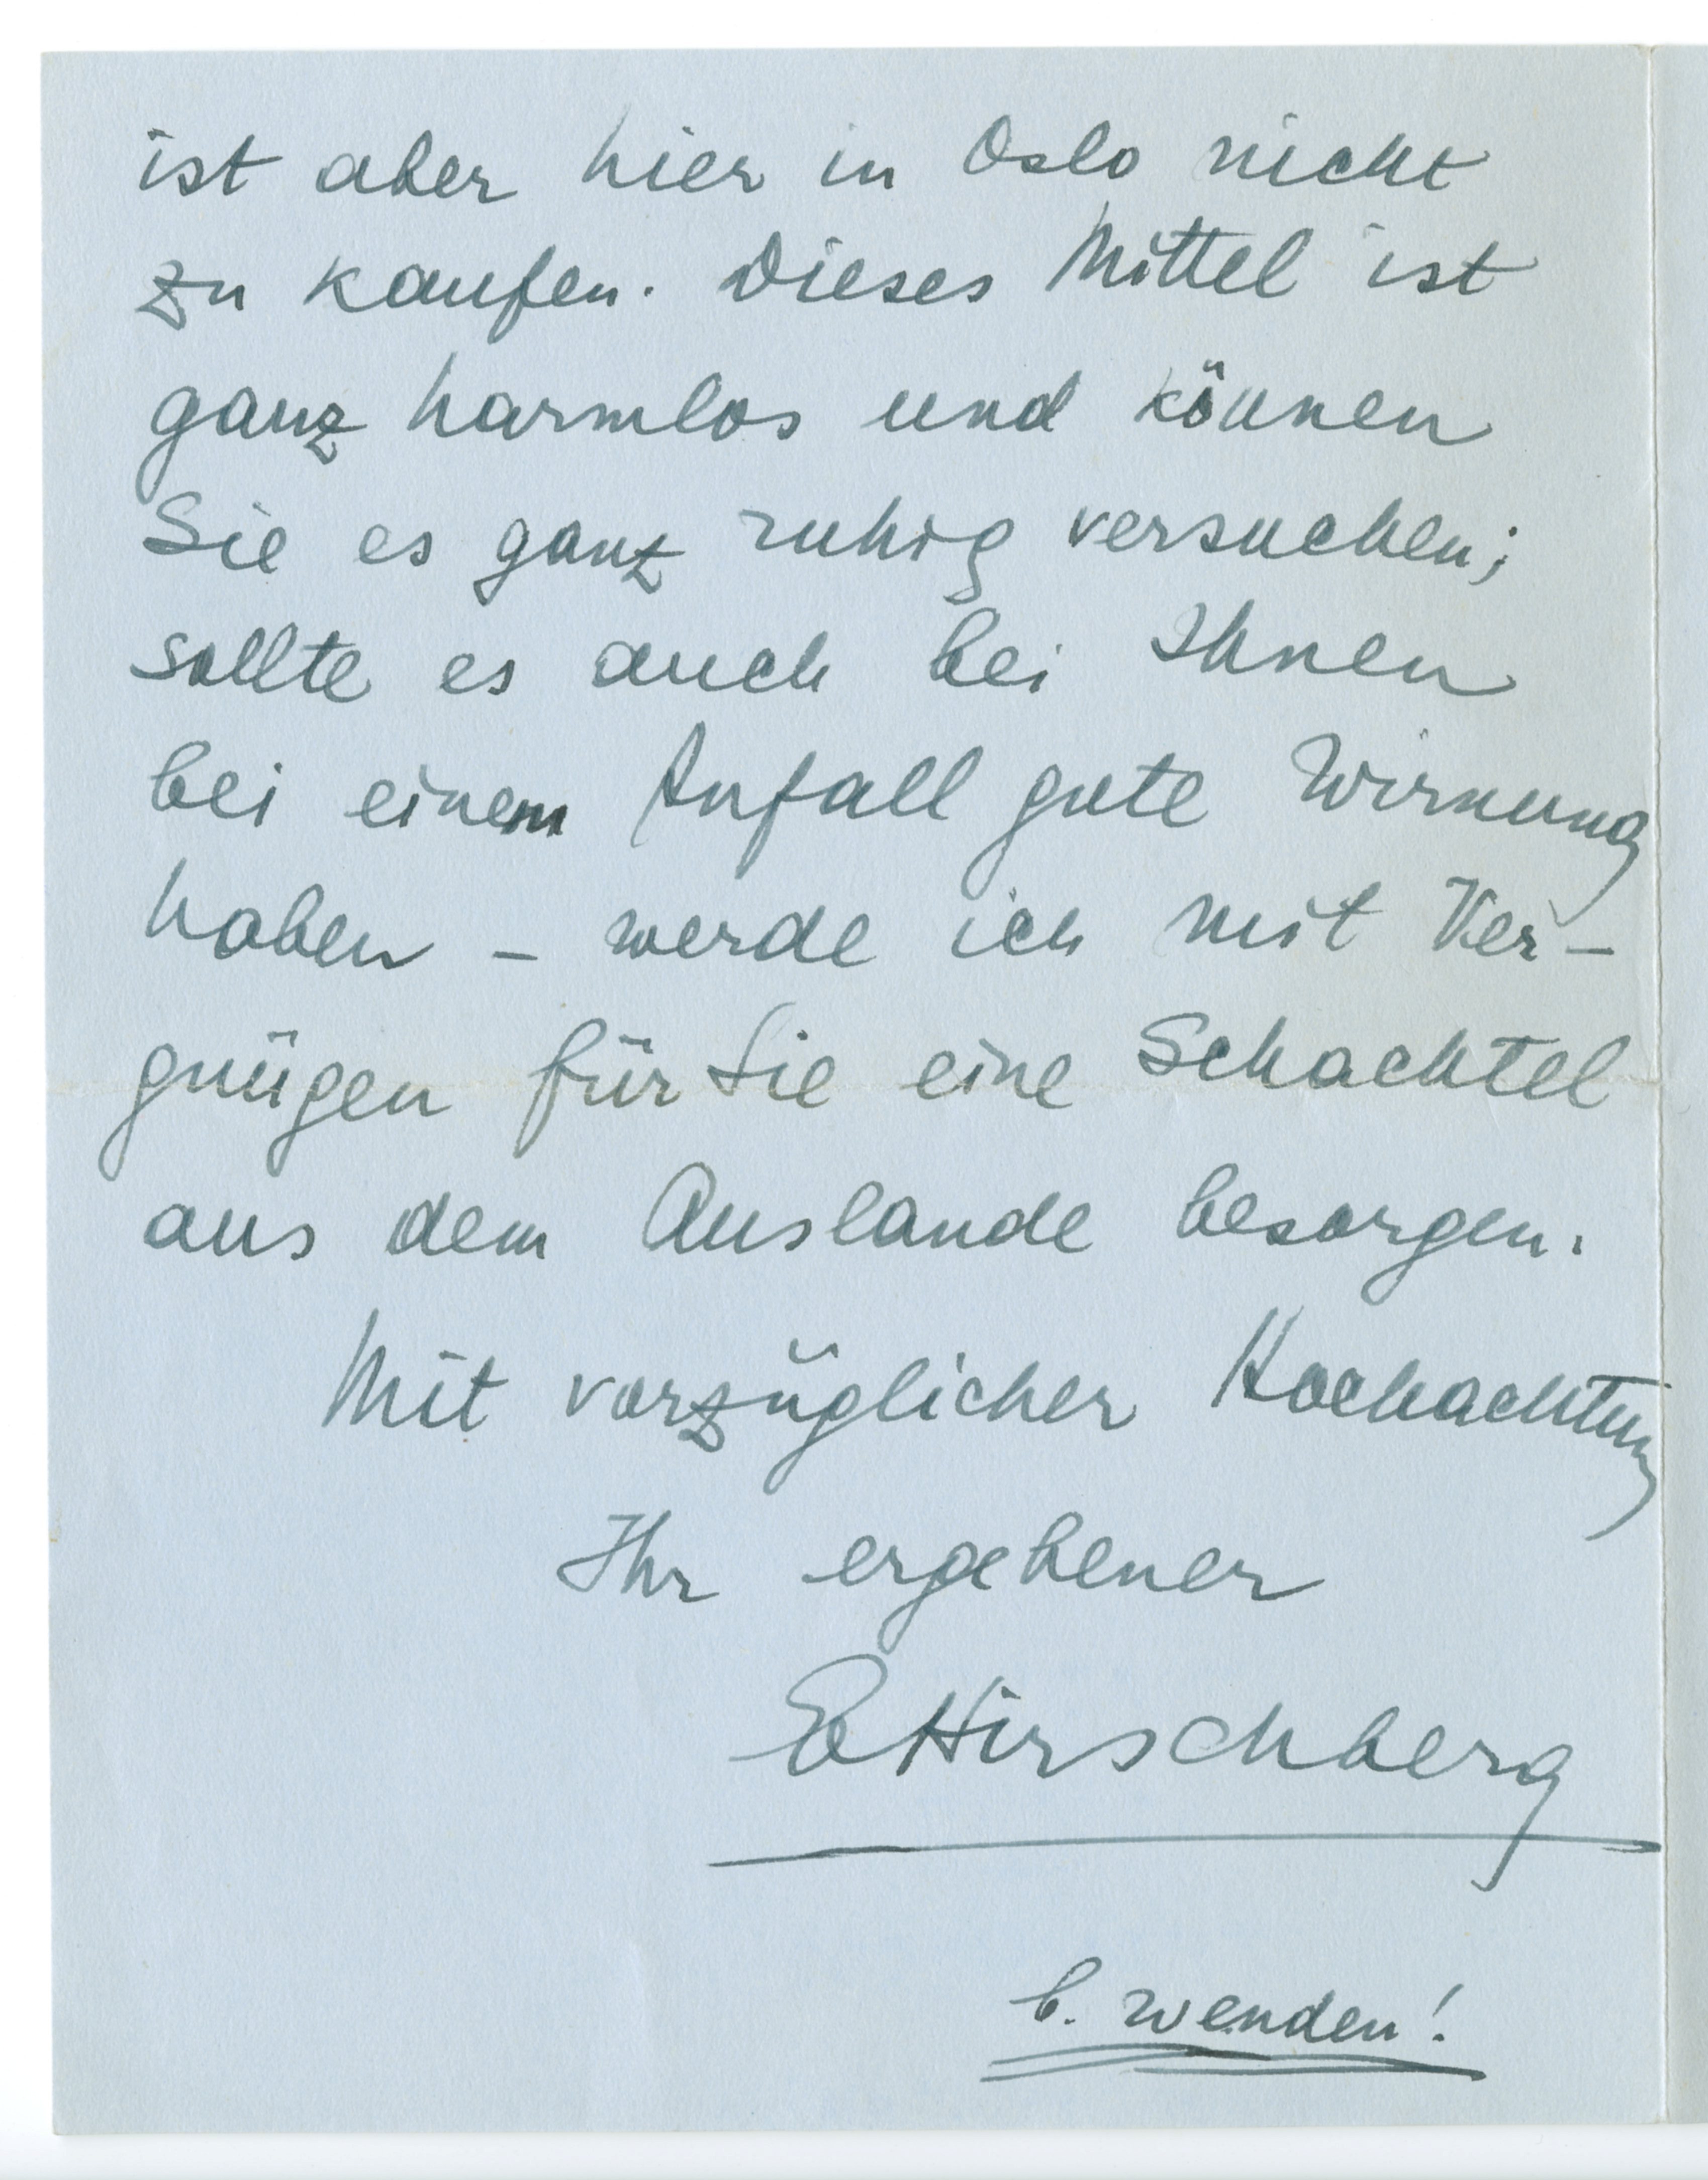 ist aber hier in Oslo nicht
zu kaufen. Dieses Mittel ist
ganz harmlos und können
Sie es ganz ruhig versuchen;
sollte es auch bei Ihnen
bei einem Anfall gute Wirkung
haben – werde ich mit Ver-
gnügen für Sie eine Schachtel
aus dem Auslande besorgen.
Mit vorzüglicher Hochachtung
Ihr ergebener
E Hirschberg
b. wenden!